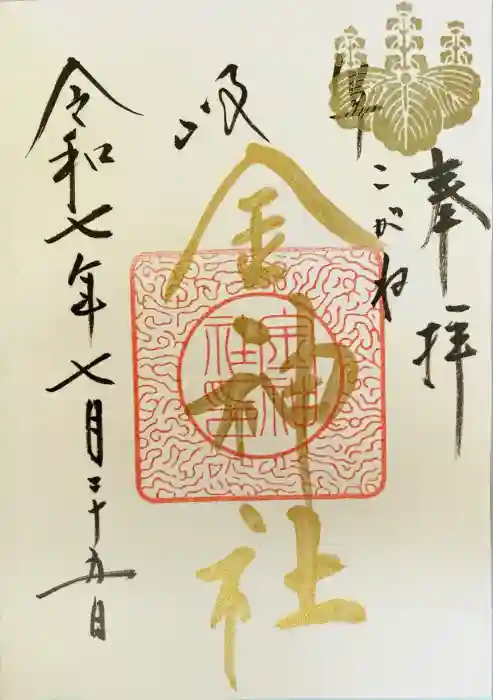 奉拝
阜
こがね
金神社
岐
令和七年七月二十九日